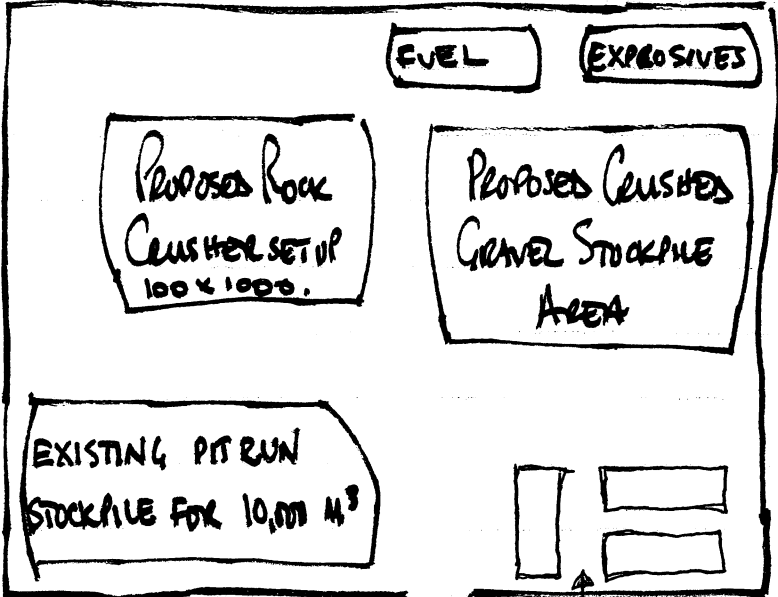 FUEL
EXPLOSIVES
PROPOSED ROCK
CRUSHER SETUP
100 x 1000.
PROPOSED CRUSHED
GRAVEL STOCKPILE
AREA
EXISTING PIT RUN
STOCKPILE FOR 10,000 M³